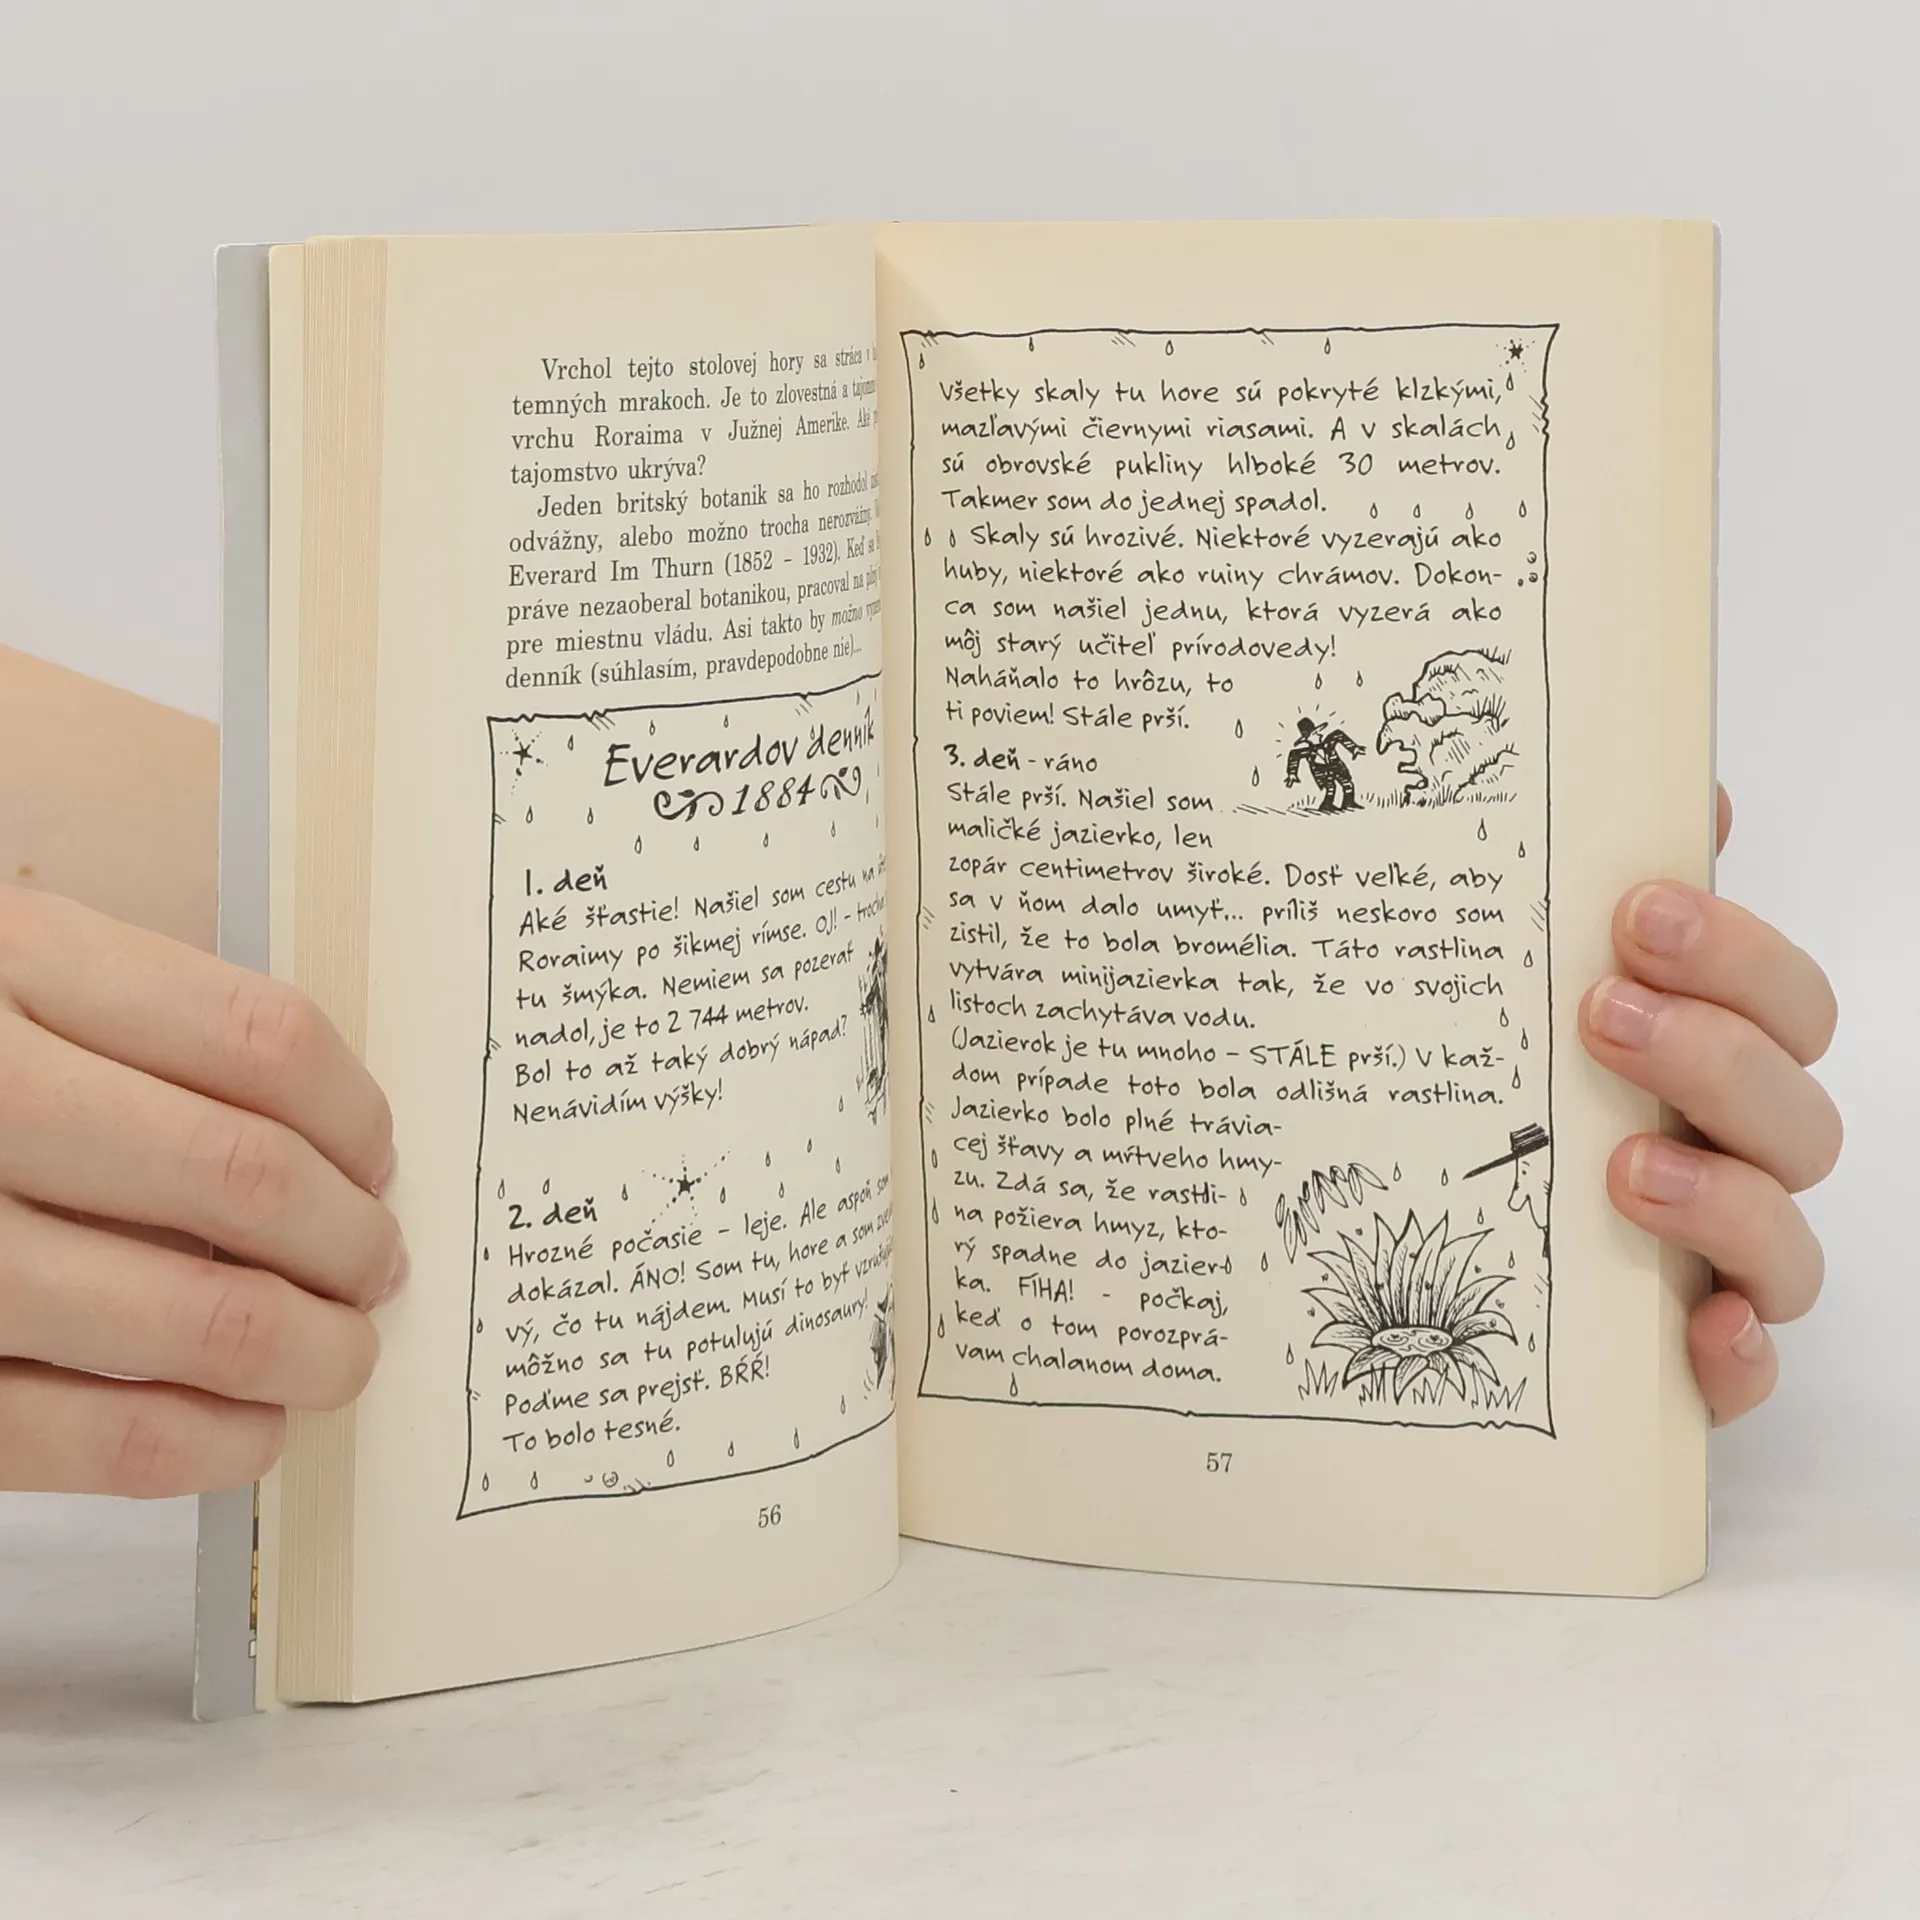 Vrchol tejto stolovej hory sa stráca v
temných mrakoch. Je to zlovestná a
vrchu Roraima v Južnej Amerike. Aké
tajomstvo ukrýva?
Jeden britský botanik sa ho rozhodol
odvážny, alebo možno trocha nerozvážny.
Everard Im Thurn (1852 – 1932). Keď sa
práve nezaoberal botanikou, pracoval na
pre miestnu vládu. Asi takto by možno
denník (súhlasím, pravdepodobne nie)...
Everardov denník
1884
1. deň
Aké šťastie! Našiel som cestu na
Roraimy po šikmej rímse. OJ! - trochu
tu šmýka. Nemiem sa pozerať
nadol, je to 2 744 metrov.
Bol to až taký dobrý nápad?
Nenávidím výšky!
2. deň
Hrozné počasie – leje. Ale aspoň som
dokázal. ÁNO! Som tu, hore a som
vý, čo tu nájdem. Musí to byť
môžno sa tu potulujú dinosaury!
Poďme sa prejsť. BŔŔ!
To bolo tesné.
56
Všetky skaly tu hore sú pokryté klzkými,
mazľavými čiernymi riasami. A v skalách
sú obrovské pukliny hlboké 30 metrov.
Takmer som do jednej spadol.
Skaly sú hrozivé. Niektoré vyzerajú ako
huby, niektoré ako ruiny chrámov. Dokon-
ca som našiel jednu, ktorá vyzerá ako
môj starý učiteľ prírodovedy!
Naháňalo to hrôzu, to
ti poviem! Stále prší.
3. deň - ráno
Stále prší. Našiel som
maličké jazierko, len
zopár centimetrov široké. Dosť veľké, aby
sa v ňom dalo umyť... príliš neskoro som
zistil, že to bola bromélia. Táto rastlina
vytvára minijazierka tak, že vo svojich
listoch zachytáva vodu.
(Jazierok je tu mnoho – STÁLE prší.) V kaž-
dom prípade toto bola odlišná rastlina.
Jazierko bolo plné trávia-
cej šťavy a mŕtveho hmy-
zu. Zdá sa, že rastli-
na požiera hmyz, kto-
rý spadne do jazier-
ka. FÍHA! - počkaj,
keď o tom porozprá-
vam chalanom doma.
57